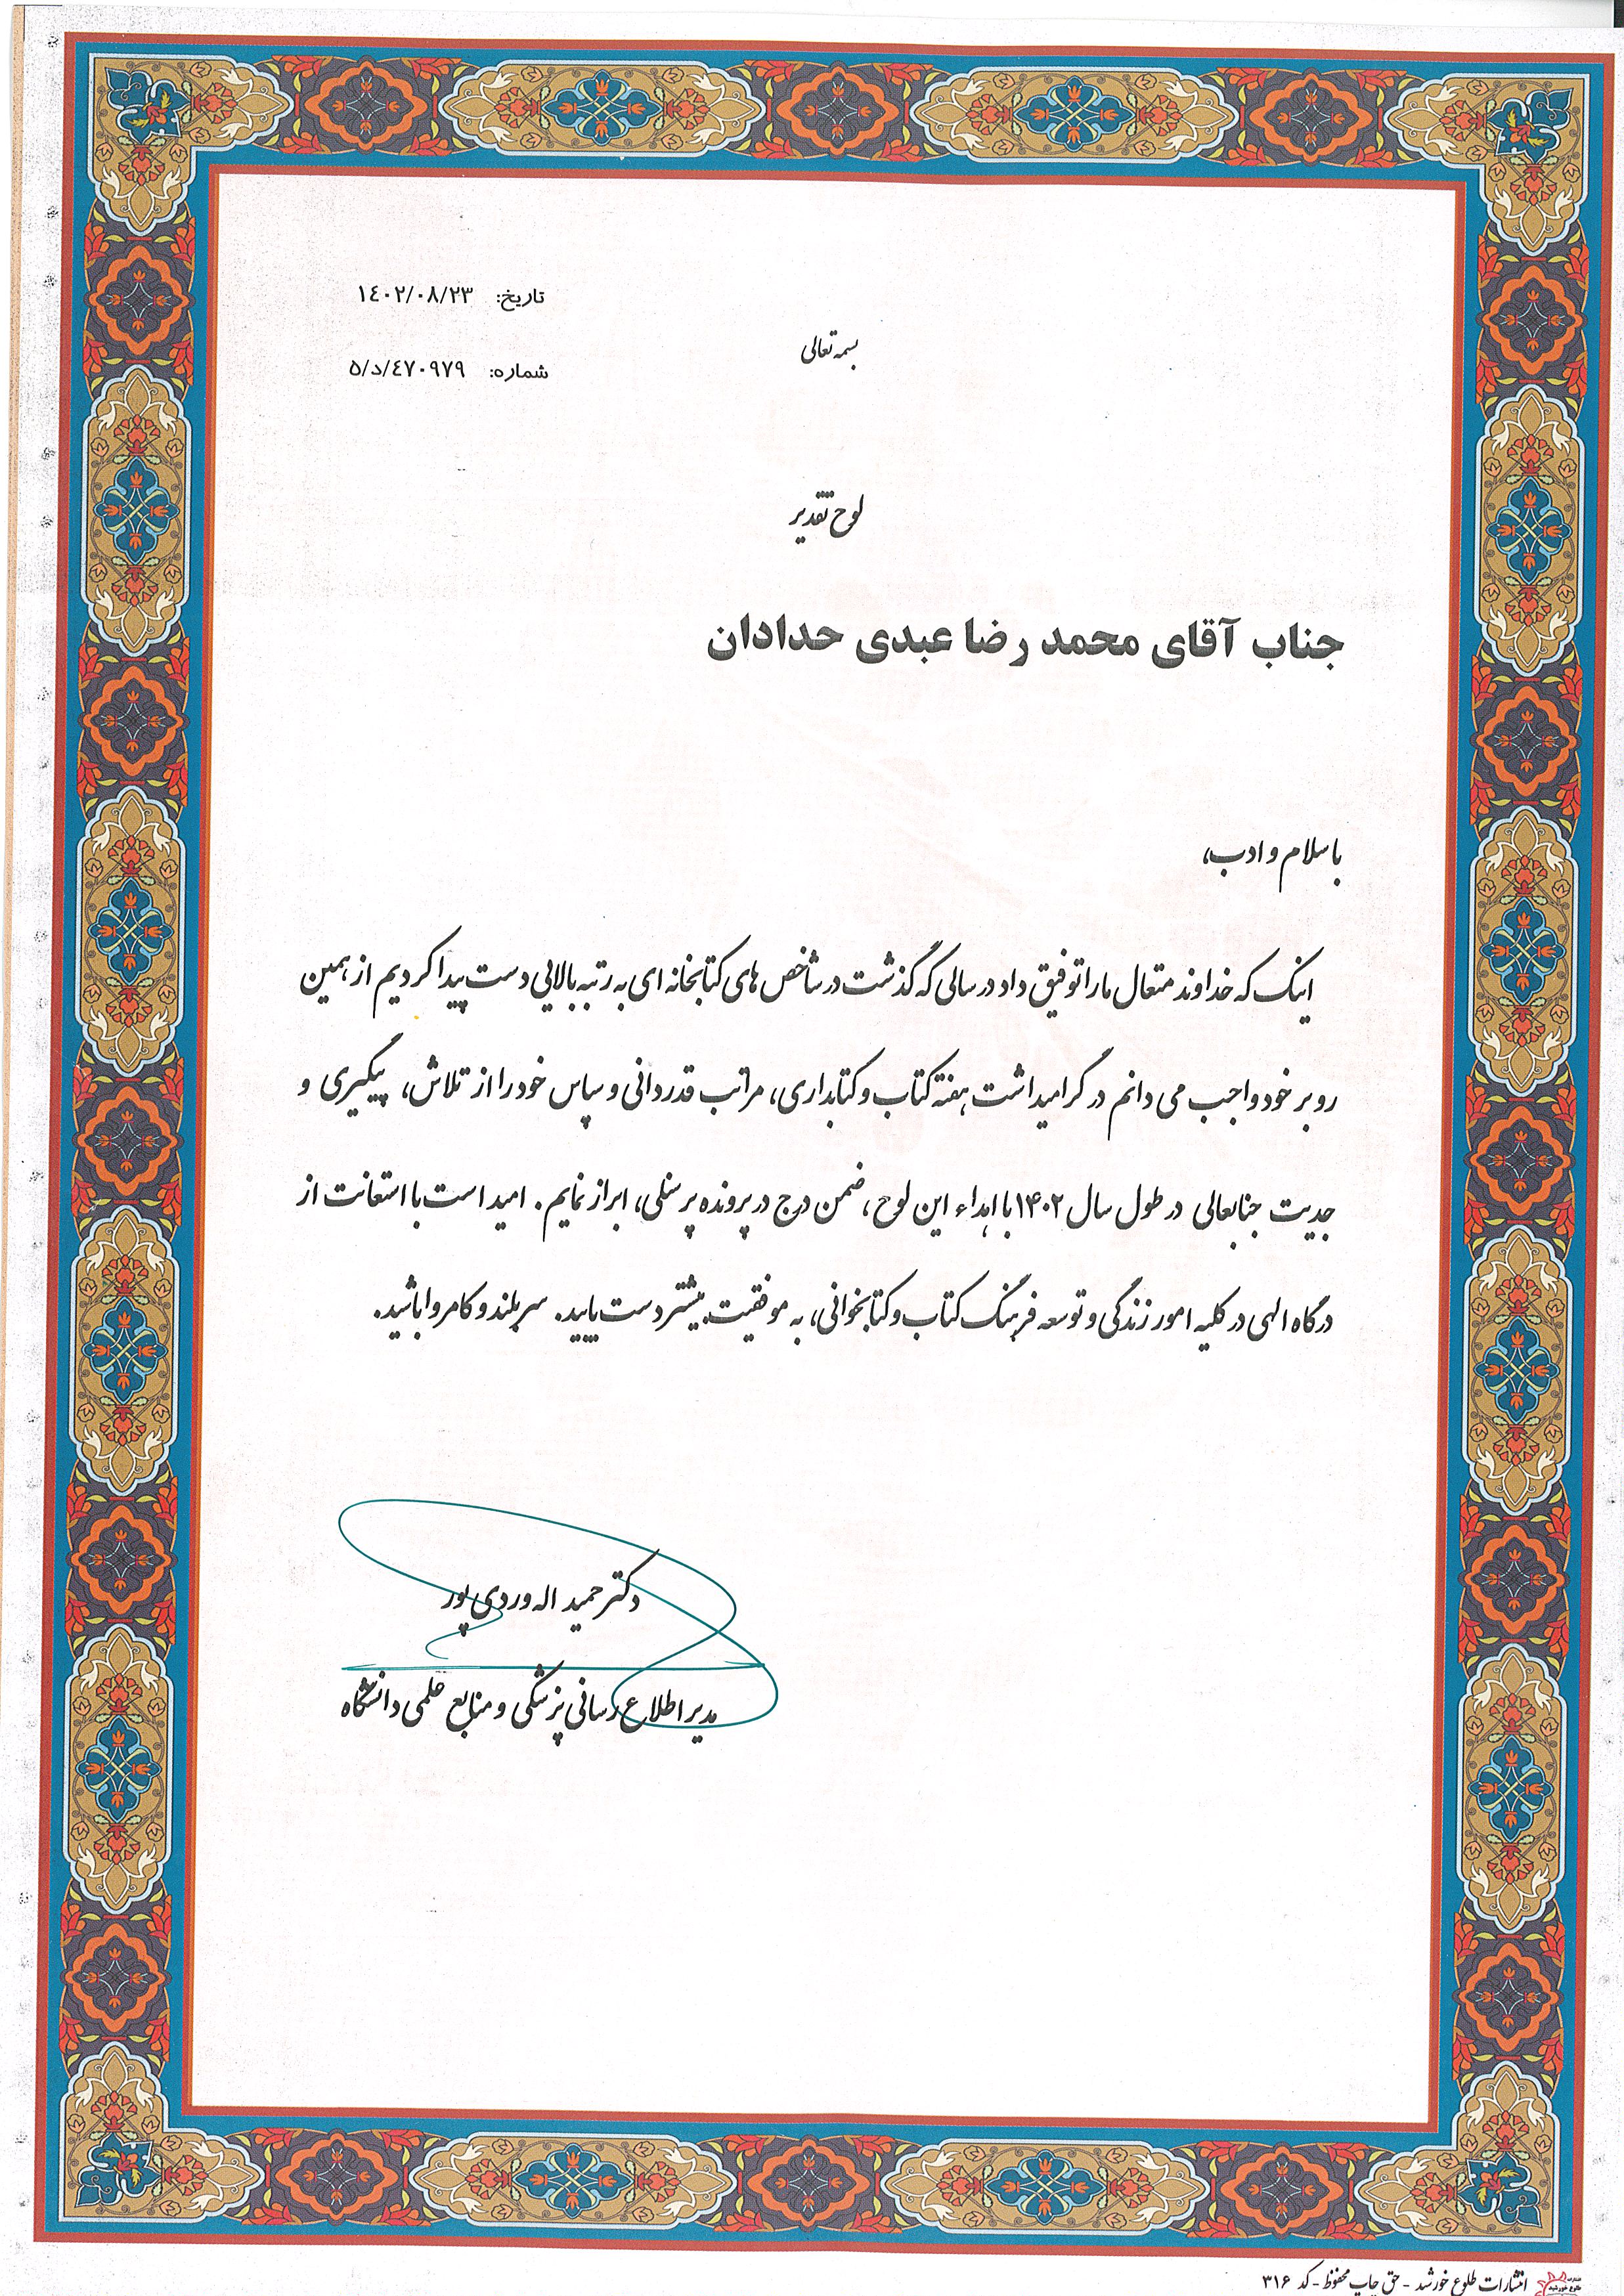 تاریخ: ۱٤۰۲/۰۸/۲۳
بسمه تعالی
شماره: ۵/د/٤۷۰۹۷۹
لوح تقدیر
جناب آقای محمد رضا عبدی حدادان
با سلام و ادب،
اینک که خداوند متعال ما را توفیق داد در سالی که گذشت در شاخص های کتابخانه ای به رتبه بالایی دست پیدا کردیم از همین
رو بر خود واجب می دانم در گرامیداشت هفته کتاب و کتابداری، مراتب قدردانی و سپاس خود را از تلاش، پیگیری و
جدیت جنابعالی در طول سال ۱۴۰۲ با اهداء این لوح، ضمن درج در پرونده پرسنلی، ابراز نمایم. امید است با استعانت از
درگاه الهی در کلیه امور زندگی و توسعه فرهنگ کتاب و کتابخوانی، به موفقیت بیشتر دست یابید. سربلند و کامروا باشید.
دکتر حمید اله وردی پور
مدیر اطلاع رسانی پزشکی و منابع علمی دانشگاه
انتشارات طلوع خورشید - حق چاپ محفوظ - کد ۳۱۶